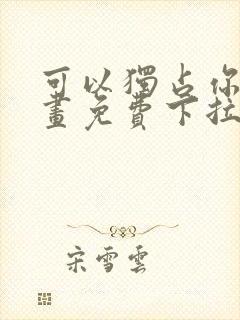 可以獨占你
畫免費下拉
宋雪雲